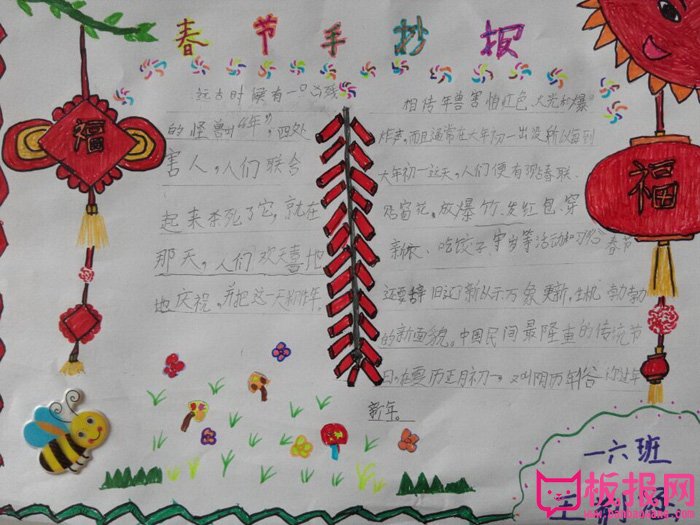 春节手抄报
远古时候有一 凶残
的怪兽叫“年”,四处
害人,人们联合
起来杀死了它,就在
那天,人们欢天喜地
地庆祝,并把这一天 年。
相传年兽害怕红色、火光和爆
炸声,而且通常在大年初一出没,所以每到
大年初一这天,人们便有 春联、
贴窗花、放爆竹、发红包、穿
新衣、吃饺子、守岁等活动和习俗,春节
还 辞旧迎新,以示万象更新,生机勃勃
的新面貌。中国民间最隆重的传统节
日,在 历正月初一,又叫阴历年,俗 过年
新年。
福
福
一六班
板报网